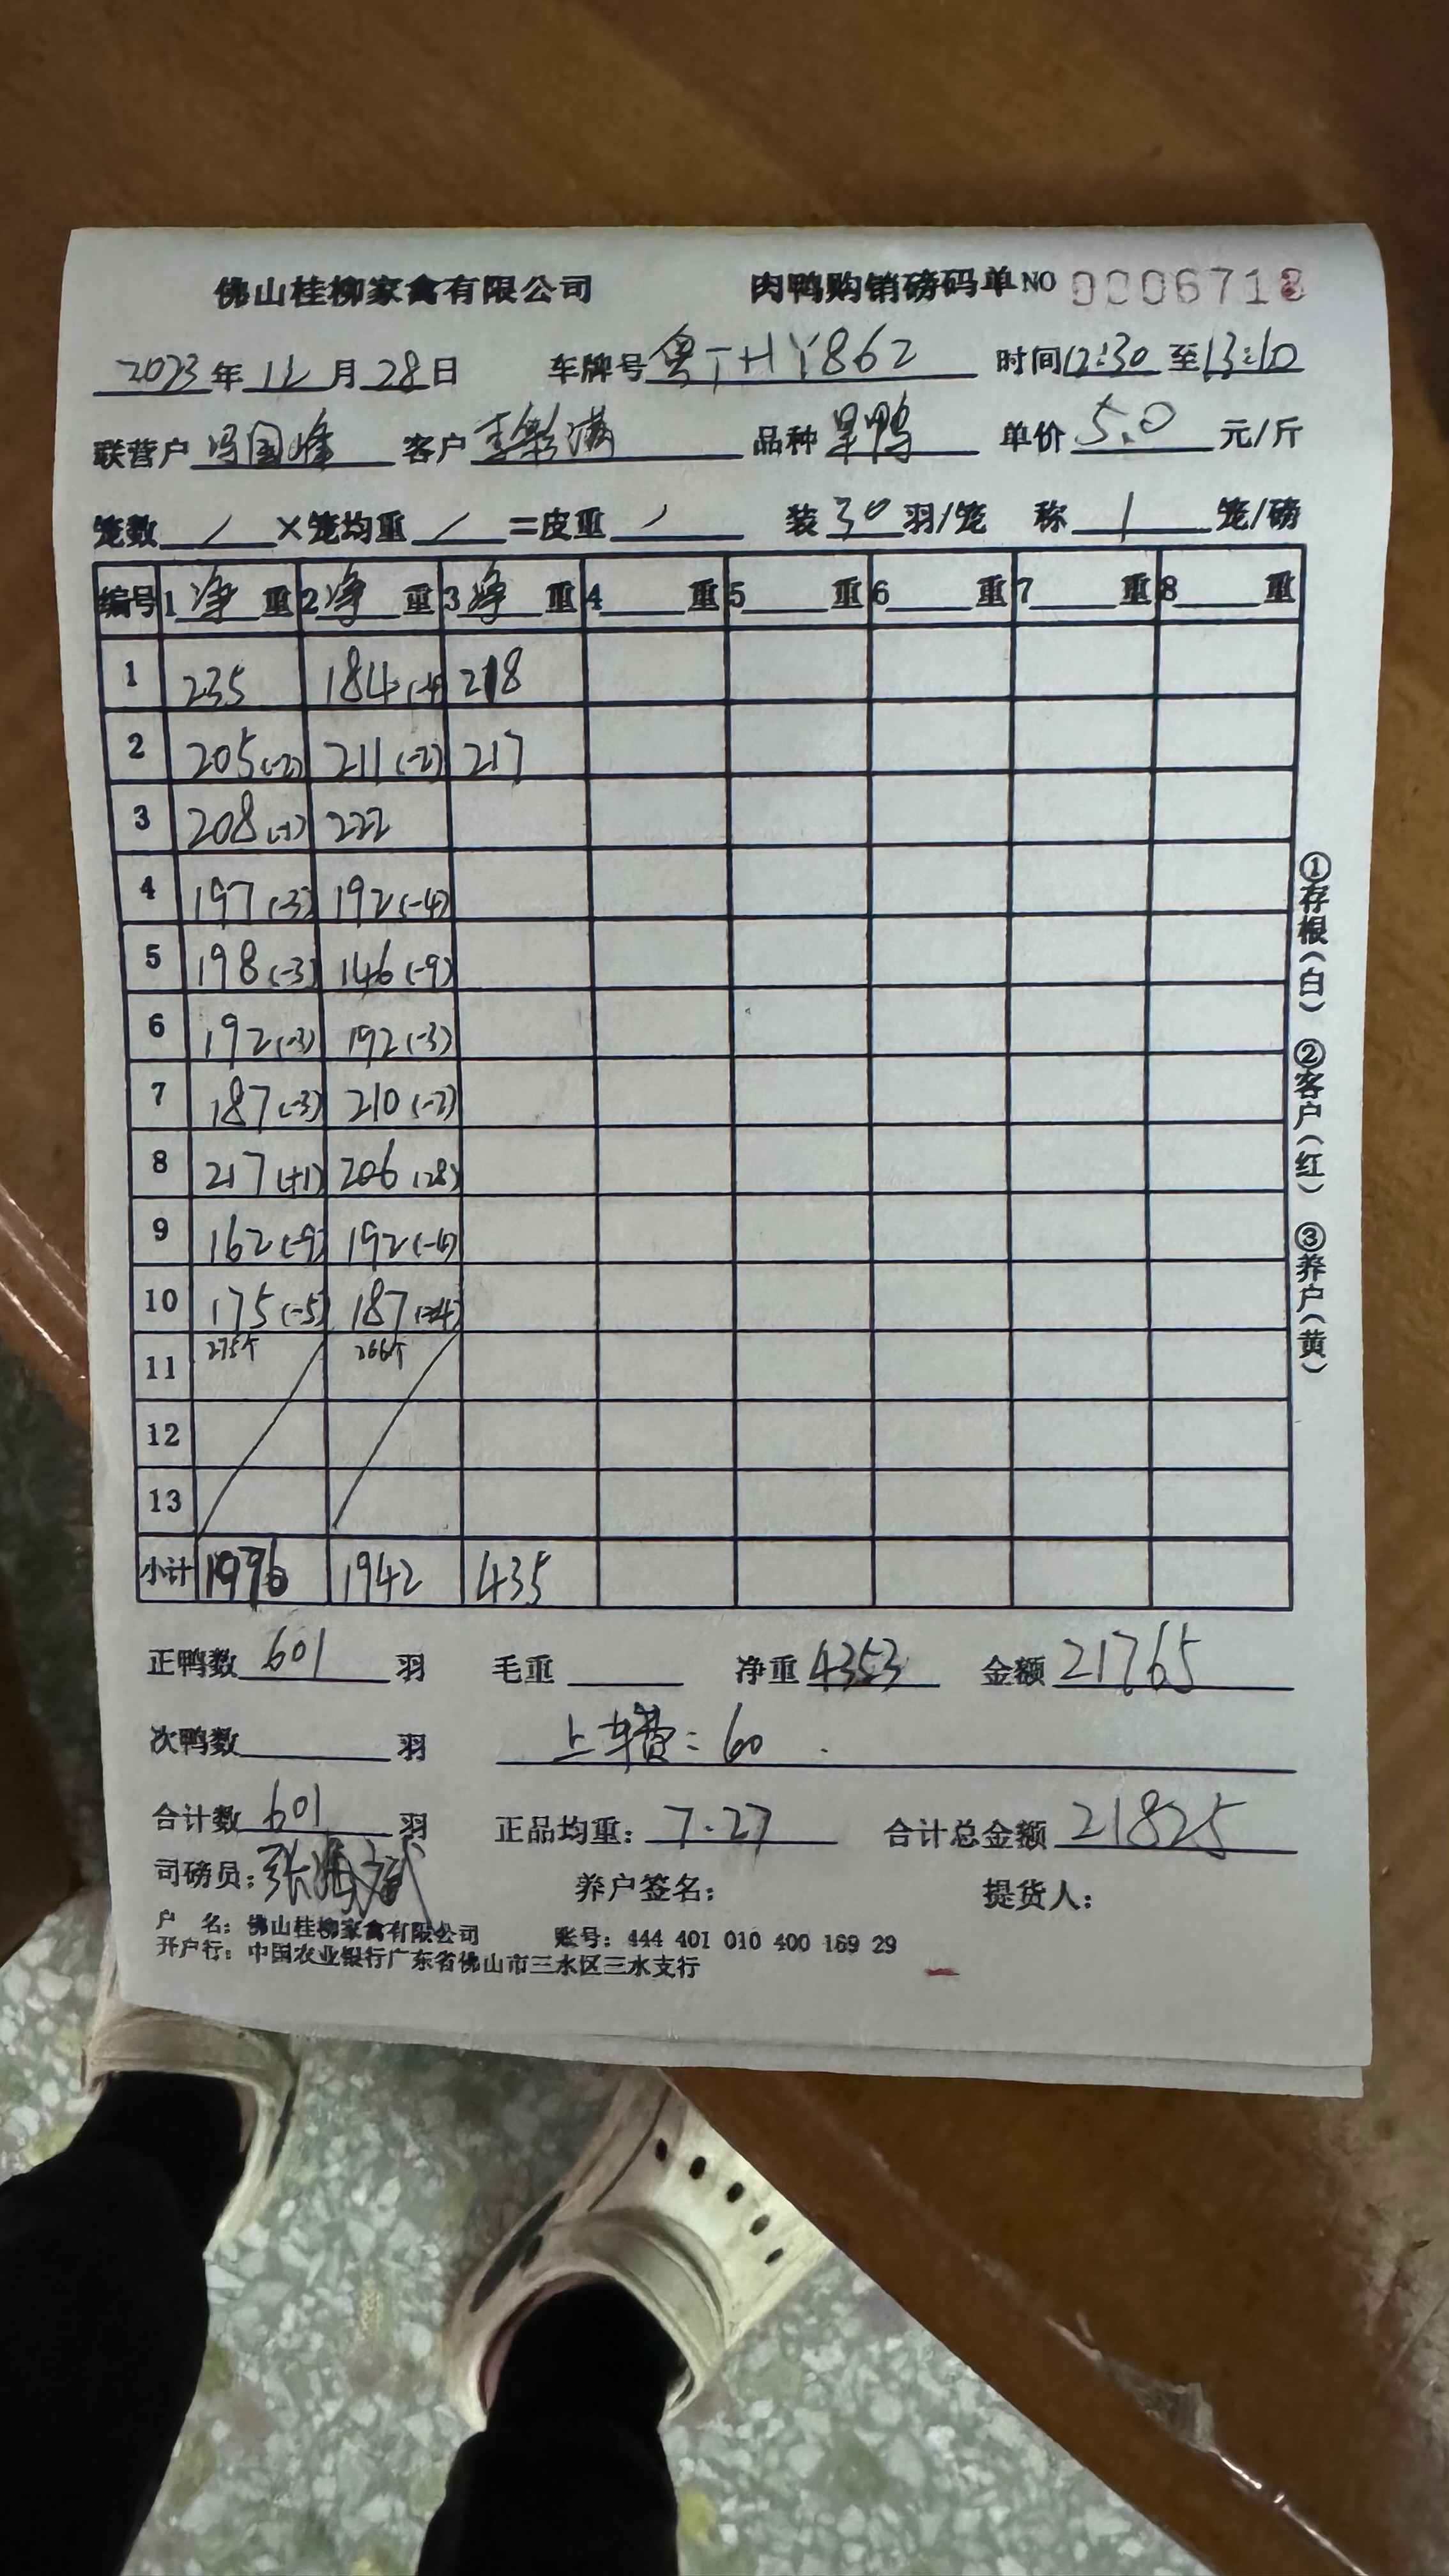 佛山桂柳家禽有限公司 肉鸭购销磅码单 NO 0006718
2023年12月28日 车牌号粤THY862 时间12:30至13:10
联营户冯国峰 客户李彩满 品种旱鸭 单价5.0元/斤
笼数/×笼均重/=皮重/ 装30羽/笼 称1笼/磅
编号 1净重 2净重 3净重 4重 5重 6重 7重 8重
1 235 184(-4) 218
2 205(-2) 211(-2) 217
3 208(-1) 222
4 197(-3) 192(-4)
5 198(-3) 146(-9)
6 192(-3) 192(-3)
7 187(-3) 210(-2)
8 217(+1) 206(28)
9 162(-9) 192(-4)
10 175(-5) 187(-4)
11 275个 266个
12
13
小计 1976 1942 435
正鸭数601羽 毛重 净重4353 金额21765
次鸭数 羽 上车费:60
合计数601羽 正品均重:7.27 合计总金额21825
司磅员: 养户签名: 提货人:
户 名:佛山桂柳家禽有限公司 账号:444 401 010 400 169 29
开户行:中国农业银行广东省佛山市三水区三水支行
①存根(白) ②客户(红) ③养户(黄)